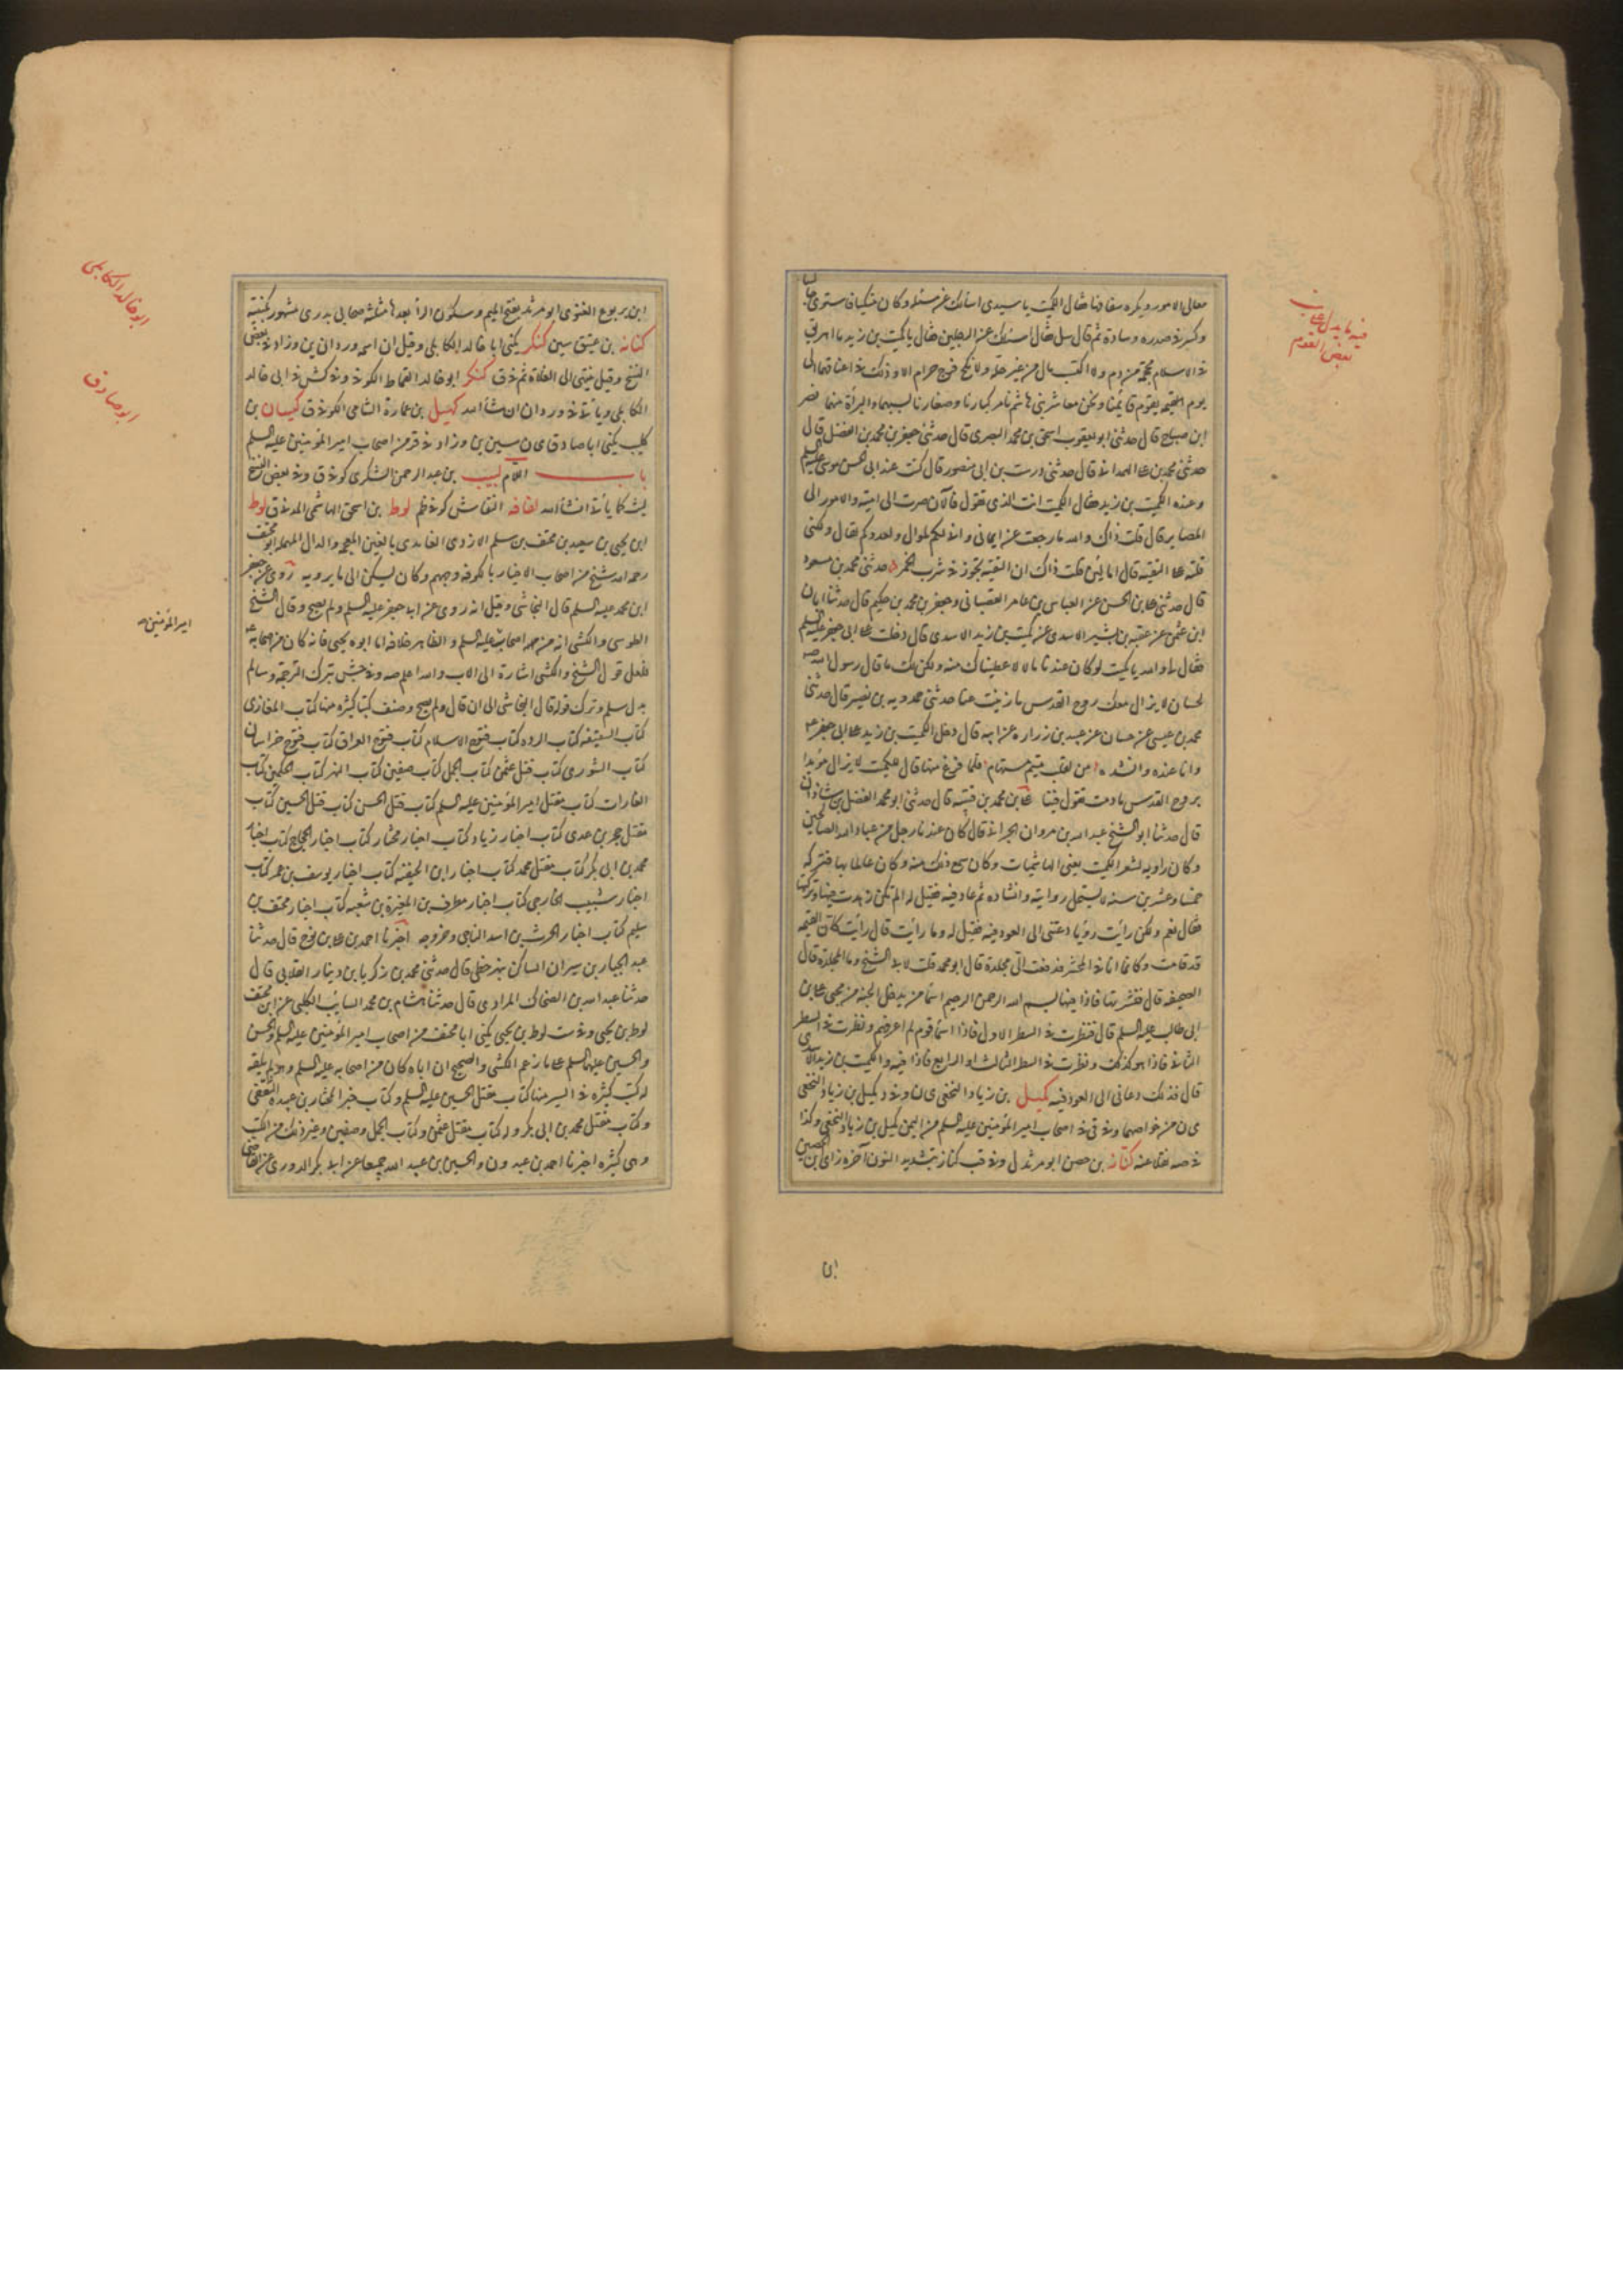 معالى الامور ويكره سفافها فقال الكميت يا سيدى اسألك عن مسئلة وكان متكيا فاستوى جالسا
وكسر فى صدره وسادة ثم قال سل فقال اسئلك عن الرجلين فقال يا كميت بن زيد ما اهريق
فى الاسلام محجمة من دم ولا اكتسب مال من غير حله ولا نكح فرج حرام الا وذلك فى اعناقهما الى
يوم القيمة يقوم قايمنا ونحن معاشر بنى هاشم نامر كبارنا وصغارنا بسبهما والبراة منهما نصر
ابن صباح قال حدثنى ابو يعقوب اسحق بن محمد البصرى قال حدثنى جعفر بن محمد بن الفضل قال
حدثنى محمد بن على الهمدانى قال حدثنى درست بن ابى منصور قال كنت عند ابى الحسن موسى عليه السلم
وعنده الكميت بن زيد فقال للكميت انت الذى تقول فالآن صرت الى امية والامور الى
المصاير قال قلت ذاك والله ما رجعت عن ايمانى وانى لكم لموال ولعدوكم لقال ولكنى
قلته على التقية قال اما لئن قلت ذاك ان التقية تجوز فى شرب الخمر حدثنى محمد بن مسعود
قال حدثنى على بن الحسن عن العباس بن عامر القصبانى وجعفر بن محمد بن حكيم قال حدثنا ابان
ابن عثمن عن عقبة بن بشير الاسدى عن كميت بن زيد الاسدى قال دخلت على ابى جعفر عليه السلم
فقال لى والله يا كميت لو كان عندنا مال لاعطيناك منه ولكن لك ما قال رسول الله صه
لحسان لا يزال معك روح القدس ما ذببت عنا حدثنى حمدويه بن نصير قال حدثنى
محمد بن عيسى عن حسان عن عبيد بن زرارة عن ابيه قال دخل الكميت بن زيد على ابى جعفر ع
وانا عنده وانشده من لقلب متيم مستهام فلما فرغ منها قال للكميت لا يزال مؤيدا
بروح القدس ما دمت تقول فينا على بن محمد بن قتيبة قال حدثنى ابو محمد الفضل بن شاذان
قال حدثنا ابو الشيخ عبد الله بن مروان الجرانى قال كان عندنا رجل من عباد الله الصالحين
وكان راوية لشعر الكميت يعنى الهاشميات وكان سمع ذلك منه وكان عالما بها فتركه
خمسا وعشرين سنة لا يستحل روايته وانشاده ثم عاد فيه فقيل له الم تكن زهدت فيها وتركتها
فقال نعم ولكن رأيت رؤيا دعتنى الى العود فيه فقيل له وما رأيت قال رأيت كان القيمة
قد قامت وكانما انا فى المحشر فدفعت الى مجلدة قال ابو محمد قلت لابى الشيخ وما المجلدة قال
الصحيفة قال فنشرتها فاذا فيها بسم الله الرحمن الرحيم اسماء من يدخل الجنة من محبى على بن
ابى طالب عليه السلم قال فنظرت فى السطر الاول فاذا اسماء قوم لم اعرفهم ونظرت فى السطر
الثانى فاذا هو كذلك ونظرت فى السطر الثالث او الرابع فاذا فيه والكميت بن زيد الاسدى
قال فذلك دعانى الى العود فيه كميل بن زياد النخعى ى ن وفى د كميل بن زياد النخعى
ى ن من خواصهما وفى قى فى اصحاب امير المؤمنين عليه السلم من اليمن كميل بن زياد النخعى وكذا
فى صه نقلا عنه كناز بن حصن ابو مرثد ل وفى قب كناز بتشديد النون آخره زاى ابن الحصين
ابن
فيه ما يدل على ذم
بعض القوم
ابن يربوع الغنوى ابو مرثد بفتح الميم وسكون الراء بعدها مثلثة صحابى بدرى مشهور بكنيته
كنانة بن عتيق سين كنكر يكنى ابا خالد الكابلى وقيل ان اسمه وردان ين وزاد فى بعض
النسخ وقيل ينتمى الى الغلاة ثم فى ق كنكر ابو خالد القماط الكوفى وفى كش فى ابى خالد
الكابلى ويأتى فى وردان ان شاء الله كهيل بن عمارة الشامى الكوفى ق كيسان بن
كليب يكنى ابا صادق ى ن سين ين وزاد فى قر من اصحاب امير المؤمنين عليه السلم
باب اللام لبيب بن عبد الرحمن الشكرى كوفى ق وفى بعض النسخ
ليث كما يأتى انشاء الله لفافة النقاش كوفى ظم لوط بن اسحق الهاشمى المدنى ق لوط
ابن يحيى بن سعيد بن مخنف بن سلم الازدى الغامدى بالغين المعجمة والدال المهملة ابو مخنف
رحمه الله شيخ من اصحاب الاخبار بالكوفة وجههم وكان يسكن الى ما يرويه روى عن جعفر
ابن محمد عليه السلم قال النجاشى وقيل انه روى عن ابى جعفر عليه السلم ولم يصح وقال الشيخ
الطوسى والكشى انه من اصحاب عليه السلم والظاهر خلافه اما ابوه يحيى فانه كان من اصحابه ع
فلعل قول الشيخ والكشى اشارة الى الاب والله اعلم صه وفى جش بترك الترجمة وسالم
بدل سلم وترك قوله قال النجاشى الى ان قال ولم يصح وصنف كتبا كثيرة منها كتاب المغازى
كتاب السقيفة كتاب الردة كتاب فتوح الاسلام كتاب فتوح العراق كتاب فتوح خراسان
كتاب الشورى كتاب قتل عثمن كتاب الجمل كتاب صفين كتاب النهر كتاب الحكمين كتاب
الغارات كتاب مقتل امير المؤمنين عليه السلم كتاب قتل الحسن كتاب قتل الحسين كتاب
مقتل حجر بن عدى كتاب اخبار زياد كتاب اخبار مختار كتاب اخبار الحجاج كتاب اخبار
محمد بن ابى بكر كتاب مقتل محمد كتاب اخبار ابن الحنفية كتاب اخبار يوسف بن عمر كتاب
اخبار شبيب الخارجى كتاب اخبار مطرف بن المغيرة بن شعبة كتاب اخبار مخنف بن
سليم كتاب اخبار الحرث بن اسد الناجى وخروجه اخبرنا احمد بن على بن نوح قال حدثنا
عبد الجبار بن سيران الساكن بنهر خطى قال حدثنى محمد بن زكريا بن دينار الغلابى قال
حدثنا عبد الله بن الضحاك المرادى قال حدثنا هشام بن محمد السايب الكلبى عن ابى مخنف
لوط بن يحيى وفى ست لوط بن يحيى يكنى ابا مخنف من اصحاب امير المؤمنين عليه السلم والحسن
والحسين عليهما السلم على ما زعم الكشى والصحيح ان اباه كان من اصحابه عليه السلم وهو لم يلقه
له كتب كثيرة فى السير منها كتاب مقتل الحسين عليه السلم وكتاب خبر المختار بن عبيدة الثقفى
وكتاب مقتل محمد بن ابى بكر وله كتاب مقتل عثمن وكتاب الجمل وصفين وغير ذلك من الكتب
وهى كثيرة اخبرنا احمد بن عبدون والحسين بن عبيد الله جميعا عن ابى بكر الدورى عن القاضى
ابو خالد الكابلى
ابو صادق
امير المؤمنين صه